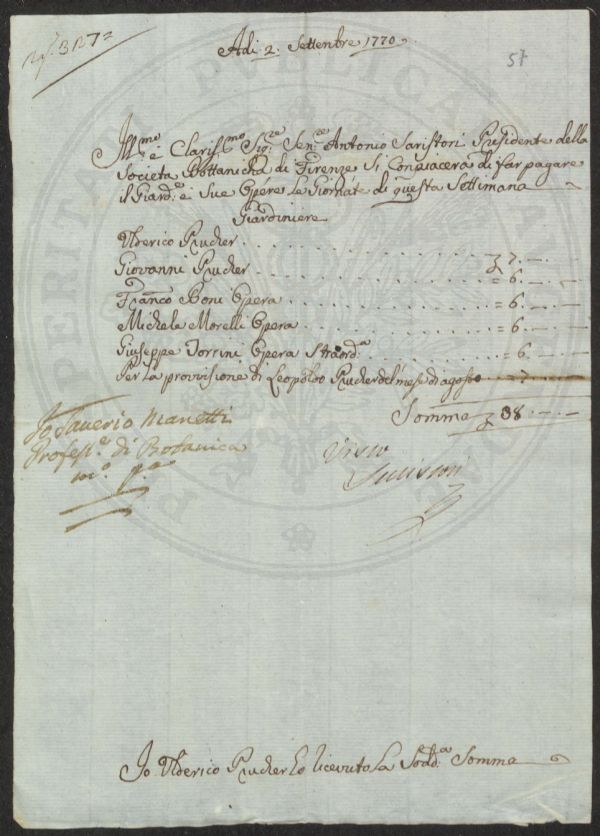 N.o 3127=
Adi 2. Settenbre 1770
57
Ill.mo è Claris.mo Sig.re Sen.re Antonio Saristori Presidente della
Societa Bottanicha di Firenze Si Conpiacerà di far pagare
il Giard.e è Sue Opére Le Giornáte di questa Settimana
Giardiniere
Ulderico Prucher . . . . . . . . . . . . . . . . . 7. — . —
Giovanni Prucher . . . . . . . . . . . . . . . . = 6. — . —
Franco Boni Opera . . . . . . . . . . . . . . = 6. — . —
Michela Morelli Opera . . . . . . . . . . . . = 6. — . —
Giuseppe Torrini Opera Straord.a . . . . . . = 6. — . —
Per la provisione di Leopoldo Prucher del mese di agosto = 7. — . —
Somma 38 — . —
Io Saverio Manetti
Profess.e di Botanica
m.o p.a
Visto
Io Ulderico Prucher Lo ricevuto La Sodd.a Somma
PUBLICA